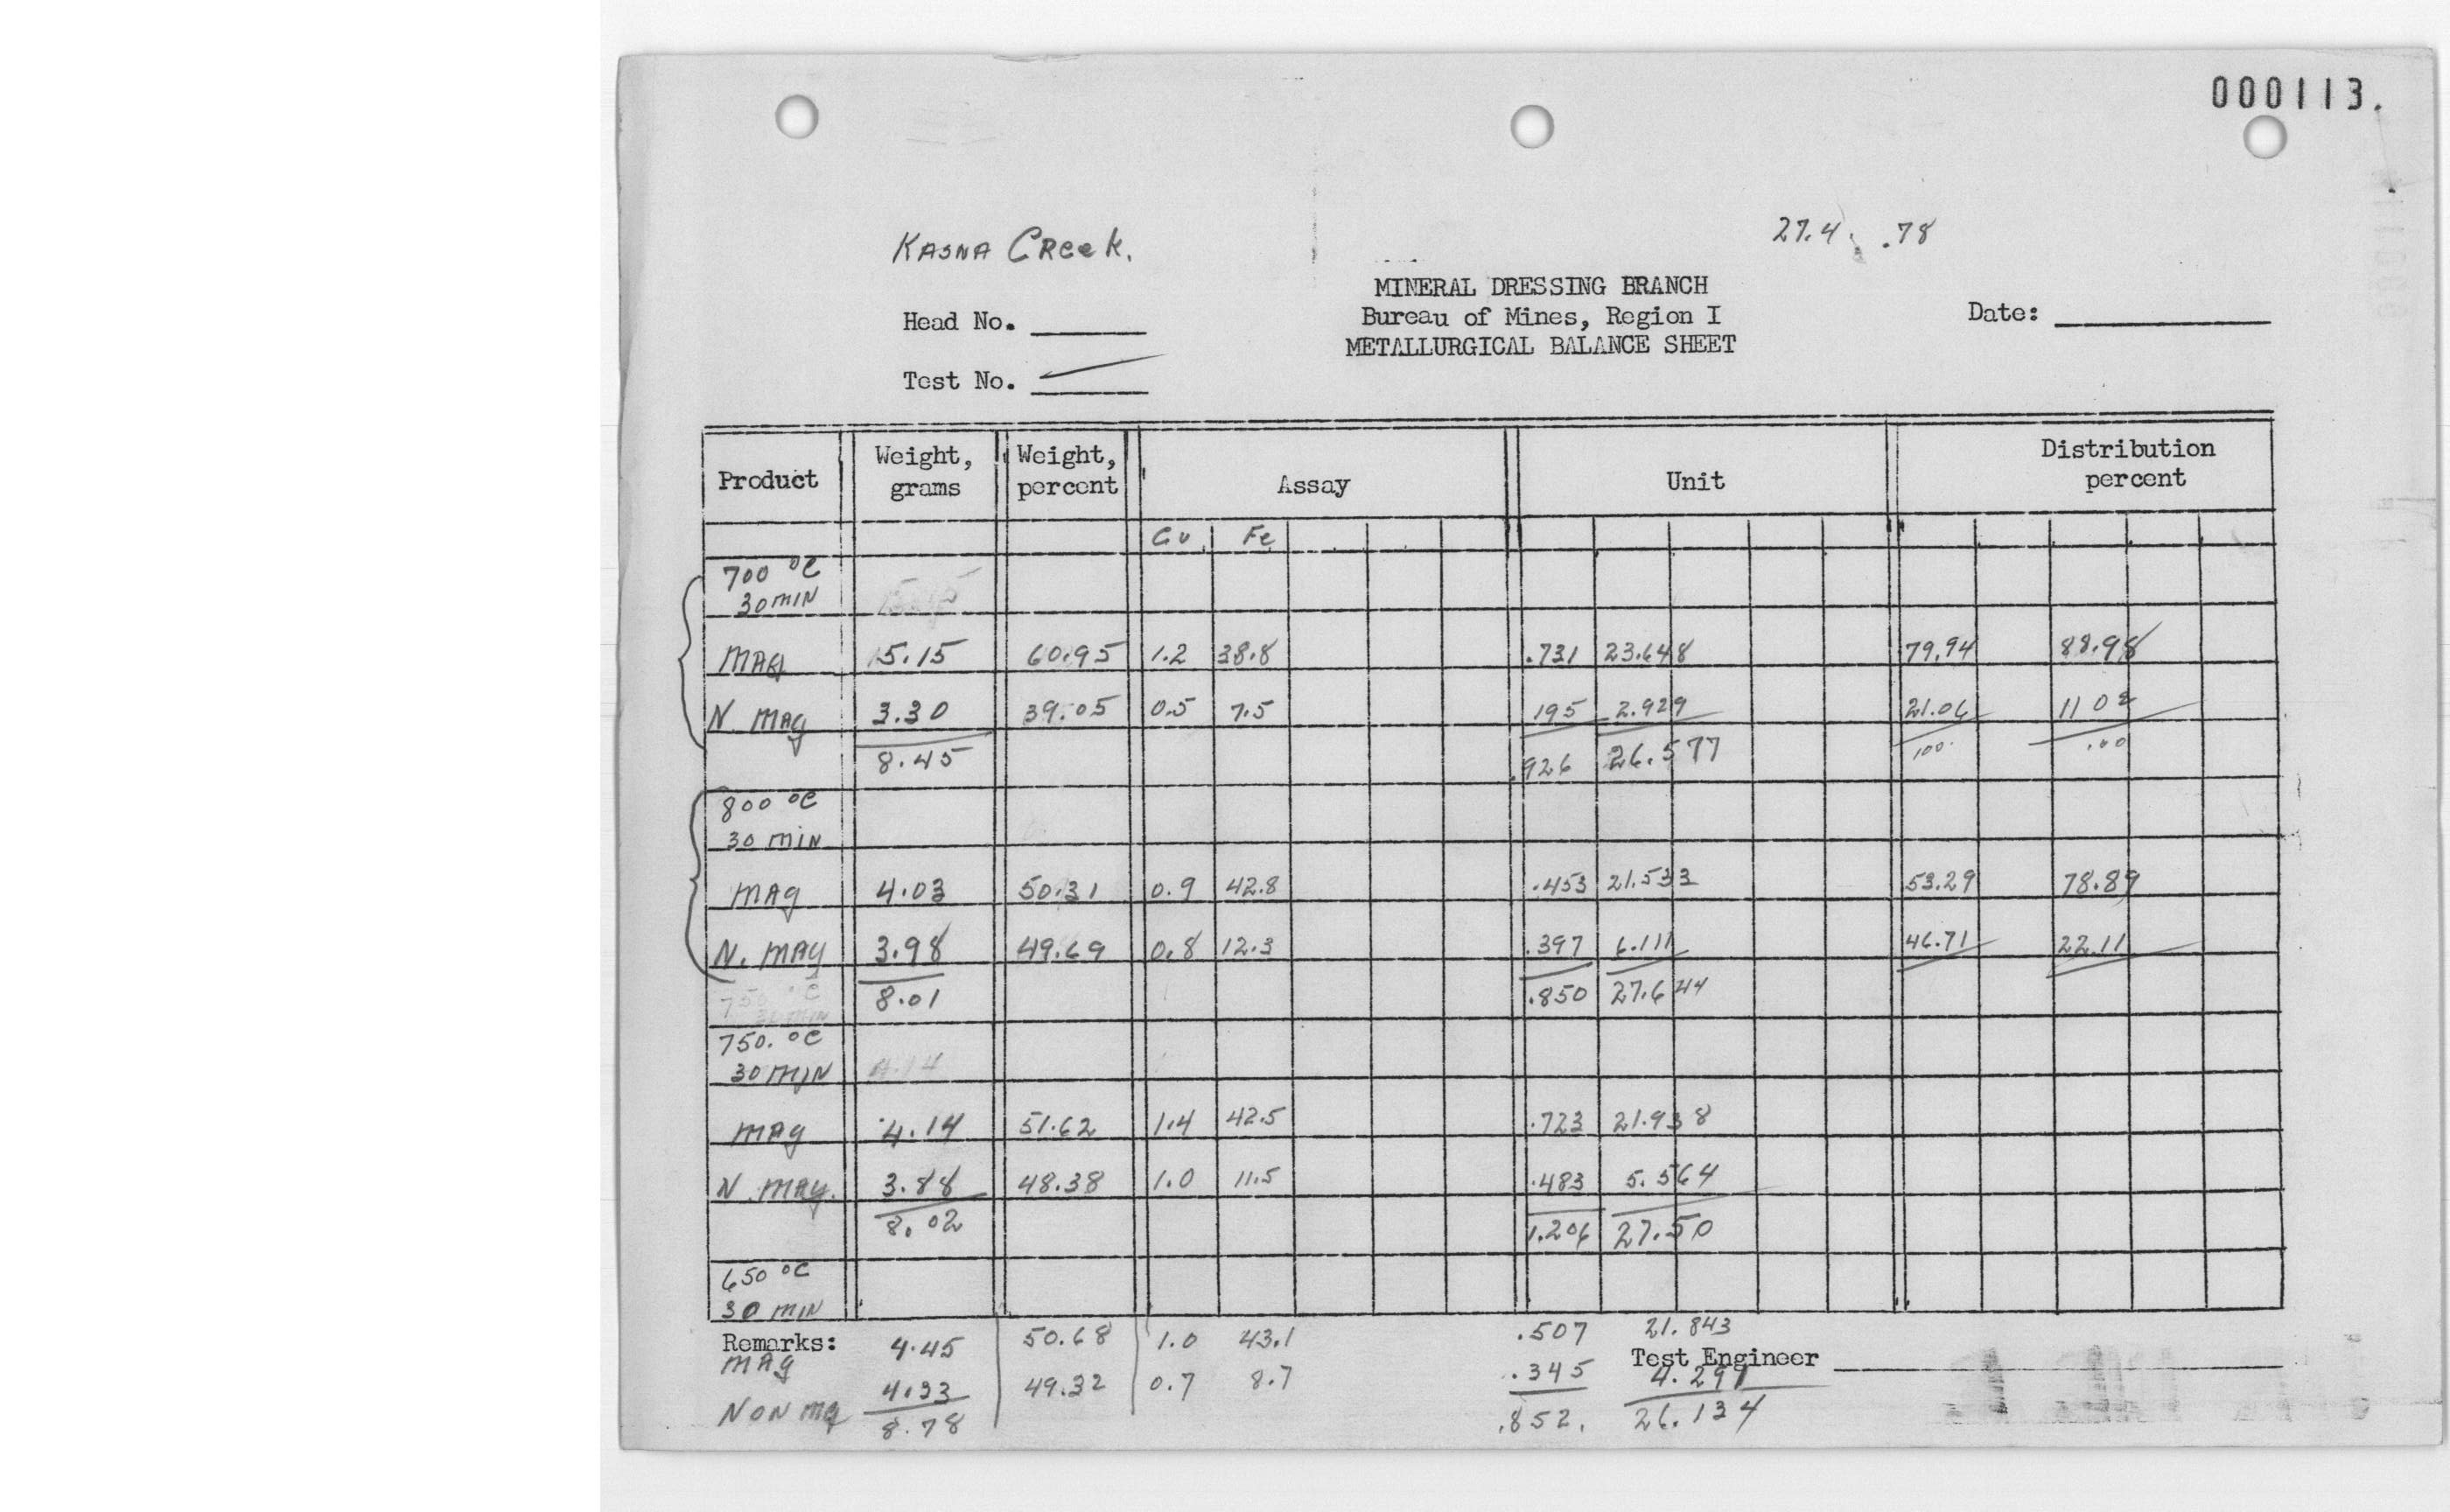 000113.
27.4 .78
KASNA CReek.
MINERAL DRESSING BRANCH
Bureau of Mines, Region I
METALLURGICAL BALANCE SHEET
Head No.
Date:
Test No.
Product Weight, grams Weight, percent Assay Unit Distribution percent
Cu Fe
700 °C
30 MIN
MAG 5.15 60.95 1.2 38.8 .731 23.648 79.94 88.98
N. MAG 3.30 39.05 0.5 7.5 195 2.929 21.06 11 02
8.45 .926 26.577 100. .00
800 °C
30 MIN
MAG 4.03 50.31 0.9 42.8 .453 21.533 53.29 78.89
N. MAG 3.98 49.69 0.8 12.3 .397 6.111 46.71 22.11
8.01 .850 27.644
750 °C
30 MIN
750. °C
30 MIN 4.14
MAG 4.14 51.62 1.4 42.5 .723 21.938
N. MAG. 3.88 48.38 1.0 11.5 .483 5.564
8.02 1.206 27.50
650 °C
30 MIN
Remarks:
MAG 4.45 50.68 1.0 43.1 .507 21.843
Test Engineer
NON MG 4.33 49.32 0.7 8.7 .345 4.291
8.78 .852. 26.134